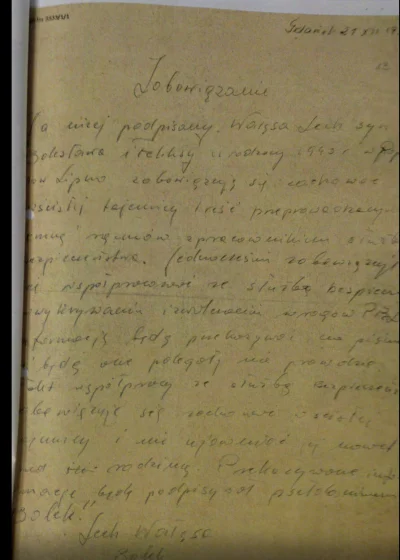 Gdańsk 21 XII 19
Zobowiązanie
Ja niżej podpisany Wałęsa Lech syn
Bolesława i Feliksy urodzony 1943 r w Po
pow Lipno zobowiązuję się zachować
ścisłej tajemnicy treść przeprowadzonyc
mną rozmów z pracownikiem służb
ezpieczeństwa. Jednocześnie zobowiązuję
się współpracować ze służbą bezpiecz
wykrywaniu i zwalczaniu wrogów PRL
nformacje będę przekazywać na piśmie
i będą one polegały na prawdzie.
akt współpracy ze służbą bezpiecze
obowiązuję się zachować w ścisłej
jemnicy i nie ujawniać jej nawet
rodziną. Przekazywane info
macje będę podpisywał pseudonimem
Bolek."
Lech Wałęsa
Bolek